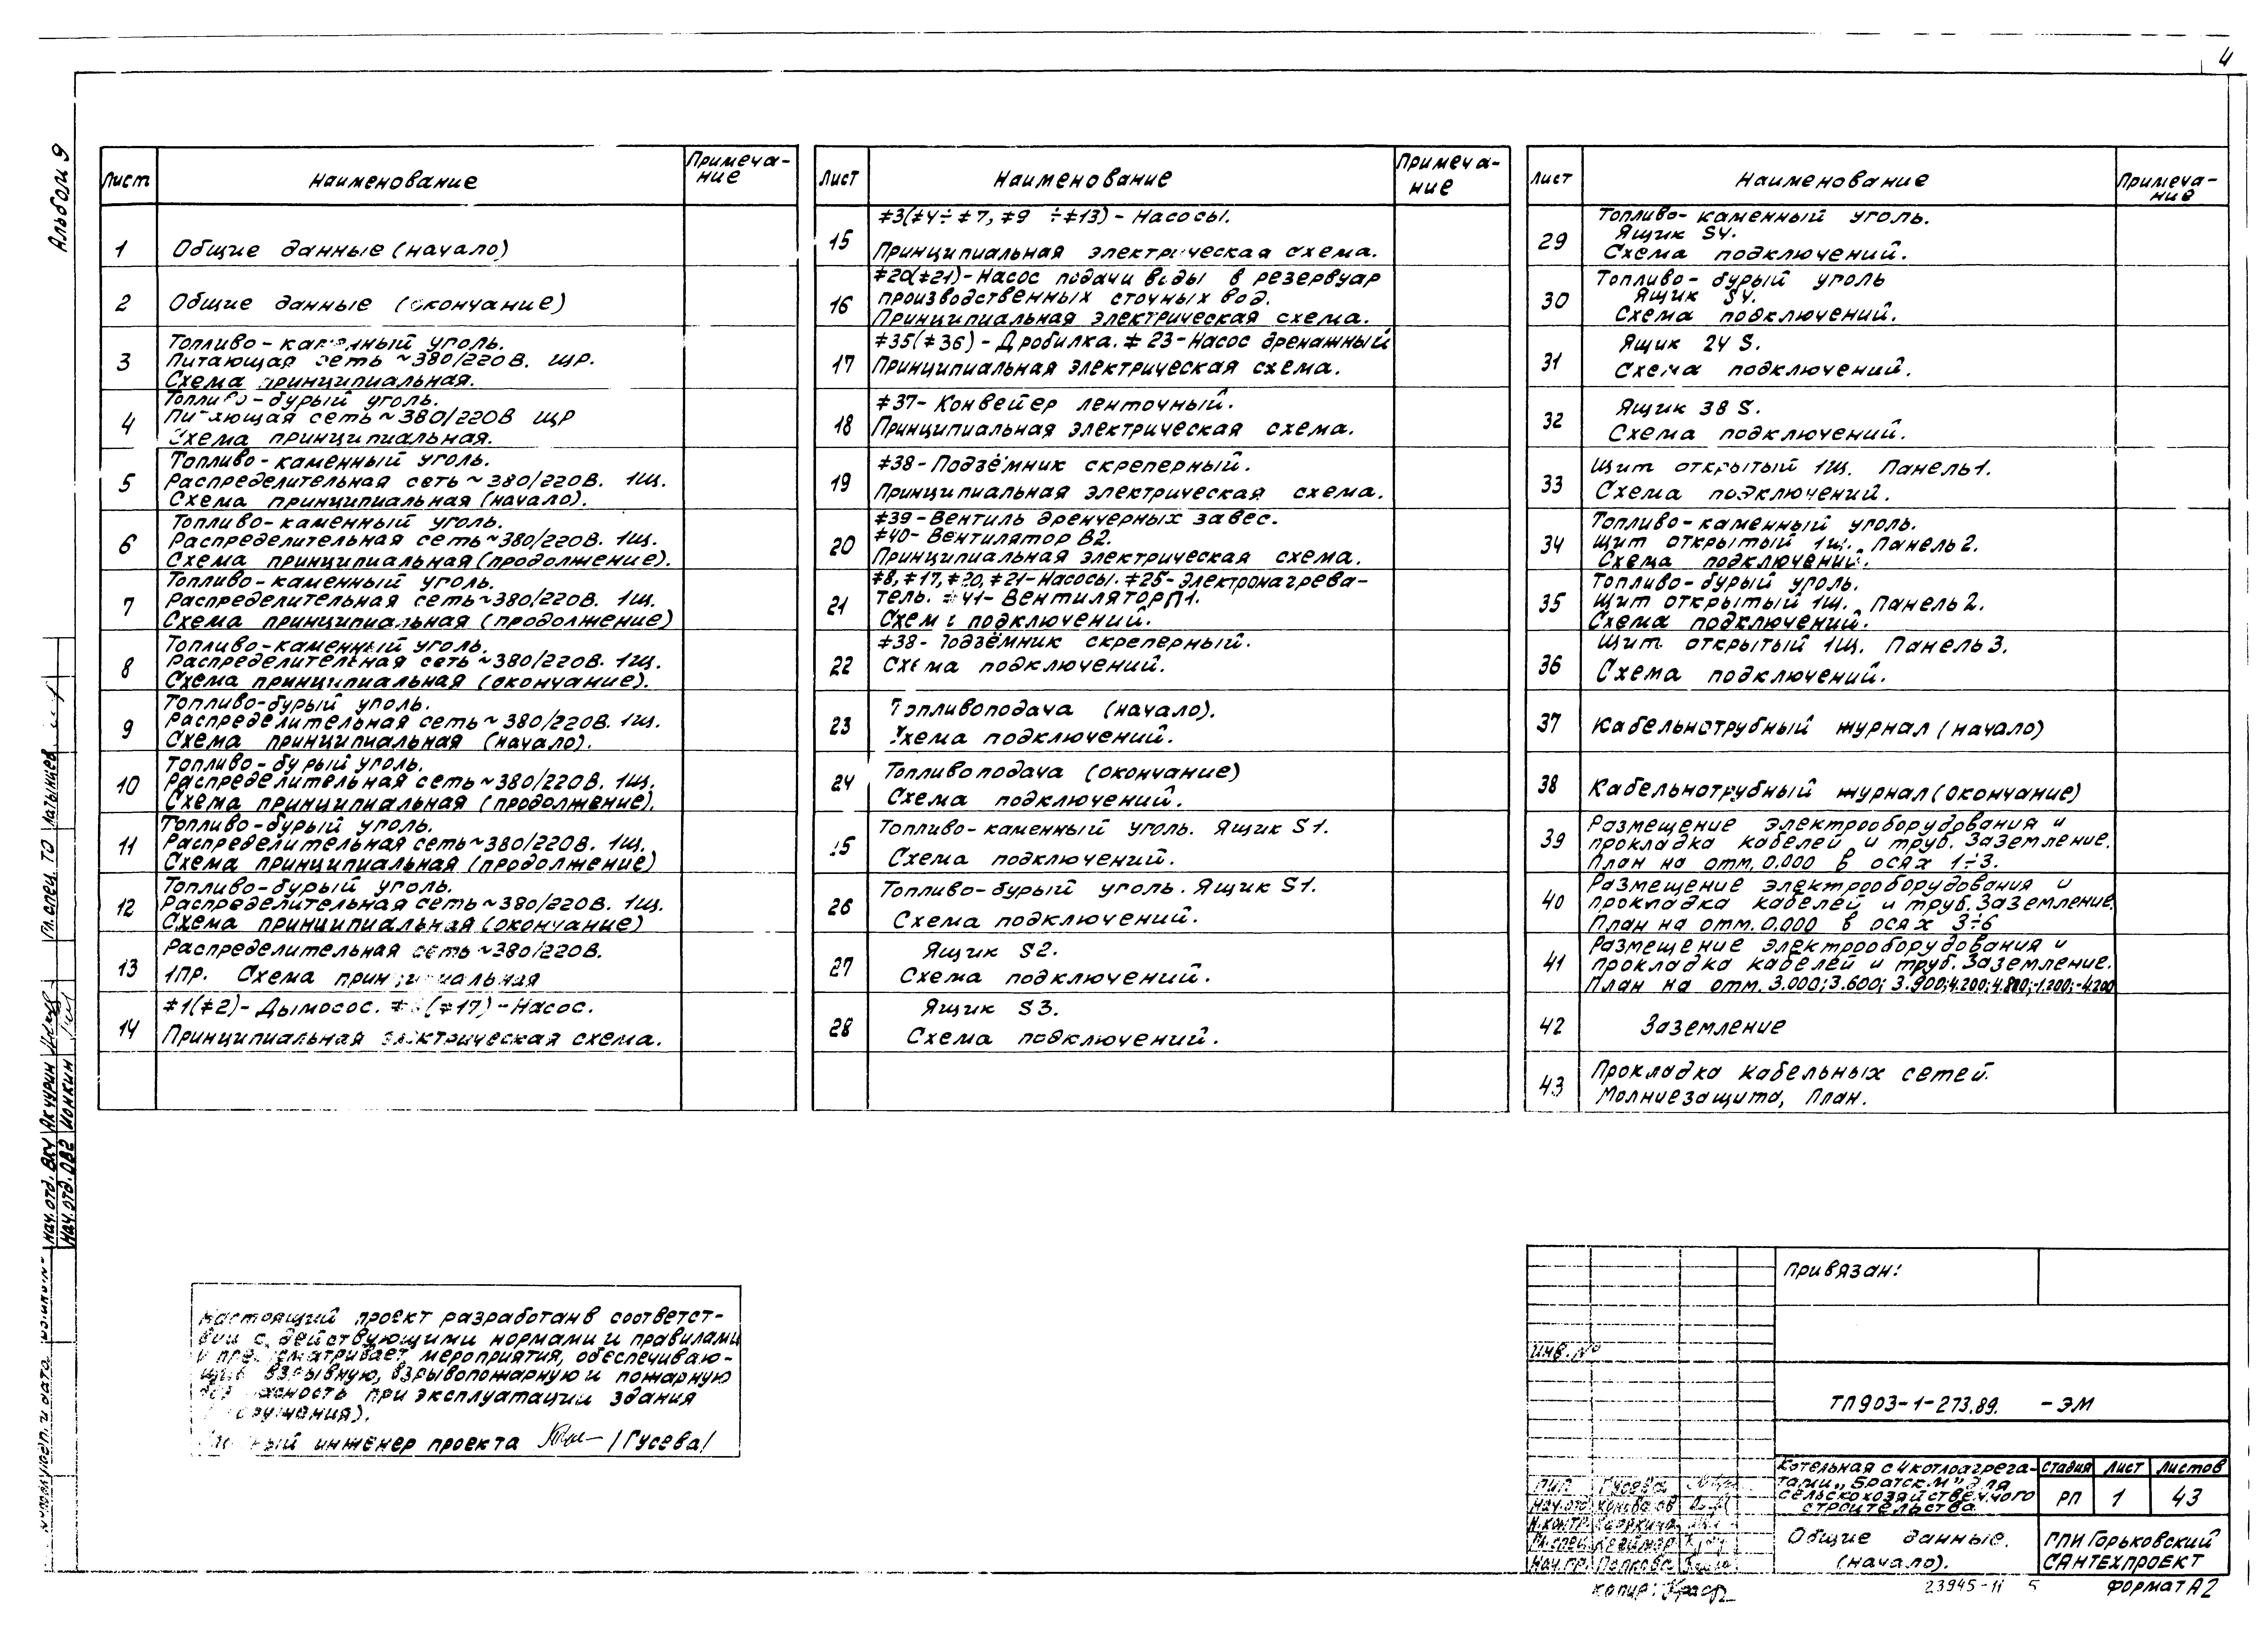 4
Альбом 9
Лист Наименование Примеча-
ние
1 Общие данные (начало)
2 Общие данные (окончание)
3 Топливо-каменный уголь.
Питающая сеть ~380/220В. ЩР.
Схема принципиальная.
4 Топливо-бурый уголь.
Питающая сеть ~380/220В ЩР
Схема принципиальная.
5 Топливо-каменный уголь.
Распределительная сеть ~380/220В. 1Щ.
Схема принципиальная (начало).
6 Топливо-каменный уголь.
Распределительная сеть ~380/220В. 1Щ.
Схема принципиальная (продолжение).
7 Топливо-каменный уголь.
Распределительная сеть ~380/220В. 1Щ.
Схема принципиальная (продолжение)
8 Топливо-каменный уголь.
Распределительная сеть ~380/220В. 1Щ.
Схема принципиальная (окончание).
9 Топливо-бурый уголь.
Распределительная сеть ~380/220В. 1Щ.
Схема принципиальная (начало).
10 Топливо-бурый уголь.
Распределительная сеть ~380/220В. 1Щ.
Схема принципиальная (продолжение).
11 Топливо-бурый уголь.
Распределительная сеть ~380/220В. 1Щ.
Схема принципиальная (продолжение)
12 Топливо-бурый уголь.
Распределительная сеть ~380/220В. 1Щ.
Схема принципиальная (окончание)
13 Распределительная сеть ~380/220В.
1ПР. Схема принципиальная
14 ≠1(≠2)-Дымосос. (≠17)-Насос.
Принципиальная электрическая схема.
Лист Наименование Примеча-
ние
15 ≠3(≠4÷≠7, ≠9 ÷≠13)-Насосы.
Принципиальная электрическая схема.
16 ≠20(≠21)-Насос подачи воды в резервуар
производственных сточных вод.
Принципиальная электрическая схема.
17 ≠35(≠36)-Дробилка. ≠23-Насос дренажный
Принципиальная электрическая схема.
18 ≠37-Конвейер ленточный.
Принципиальная электрическая схема.
19 ≠38-Подъёмник скреперный.
Принципиальная электрическая схема.
20 ≠39-Вентиль дренчерных завес.
≠40-Вентилятор В2.
Принципиальная электрическая схема.
21 ≠8, ≠17, ≠20, ≠21-Насосы. ≠25-Электронагрева-
тель. ≠41-Вентилятор П1.
Схема подключений.
22 ≠38-Подъёмник скреперный.
Схема подключений.
23 Топливоподача (начало).
Схема подключений.
24 Топливоподача (окончание)
Схема подключений.
25 Топливо-каменный уголь. Ящик S1.
Схема подключений.
26 Топливо-бурый уголь. Ящик S1.
Схема подключений.
27 Ящик S2.
Схема подключений.
28 Ящик S3.
Схема подключений.
Лист Наименование Примеча-
ние
29 Топливо-каменный уголь.
Ящик S4.
Схема подключений.
30 Топливо-бурый уголь
Ящик S4.
Схема подключений.
31 Ящик 24S.
Схема подключений.
32 Ящик 38S.
Схема подключений.
33 Щит открытый 1Щ. Панель 1.
Схема подключений.
34 Топливо-каменный уголь.
Щит открытый 1Щ. Панель 2.
Схема подключений.
35 Топливо-бурый уголь.
Щит открытый 1Щ. Панель 2.
Схема подключений.
36 Щит открытый 1Щ. Панель 3.
Схема подключений.
37 Кабельнотрубный журнал (начало)
38 Кабельнотрубный журнал (окончание)
39 Размещение электрооборудования и
прокладка кабелей и труб. Заземление.
План на отм. 0.000 в осях 1÷3.
40 Размещение электрооборудования и
прокладка кабелей и труб. Заземление.
План на отм. 0.000 в осях 3÷6
41 Размещение электрооборудования и
прокладка кабелей и труб. Заземление.
План на отм. 3.000; 3.600; 3.900; 4.200; 4.800; -1.200; -4.200
42 Заземление
43 Прокладка кабельных сетей.
Молниезащита, План.
Гл. спец. ТО Латынцев
Нач. отд. ВКЧ Акчурин
Нач. отд. ОВ2 Ионкин
Настоящий проект разработан в соответст-
вии с действующими нормами и правилами
и предусматривает мероприятия, обеспечиваю-
щие взрывную, взрывопожарную и пожарную
безопасность при эксплуатации здания
(сооружения).
Главный инженер проекта /Гусева/
Привязан:
Инв. №
ТП903-1-273.89. -ЭМ
Котельная с 4 котлоагрега-
тами „Братск-М" для
сельскохозяйственного
строительства
Стадия Лист Листов
РП 1 43
ГИП Гусева
Нач. отд Коновалов
Н.контр
Гл. спец
Нач. гр. Попкова
Общие данные.
(начало).
ГПИ Горьковский
САНТЕХПРОЕКТ
Копир:
23945-11 5
Формат А2